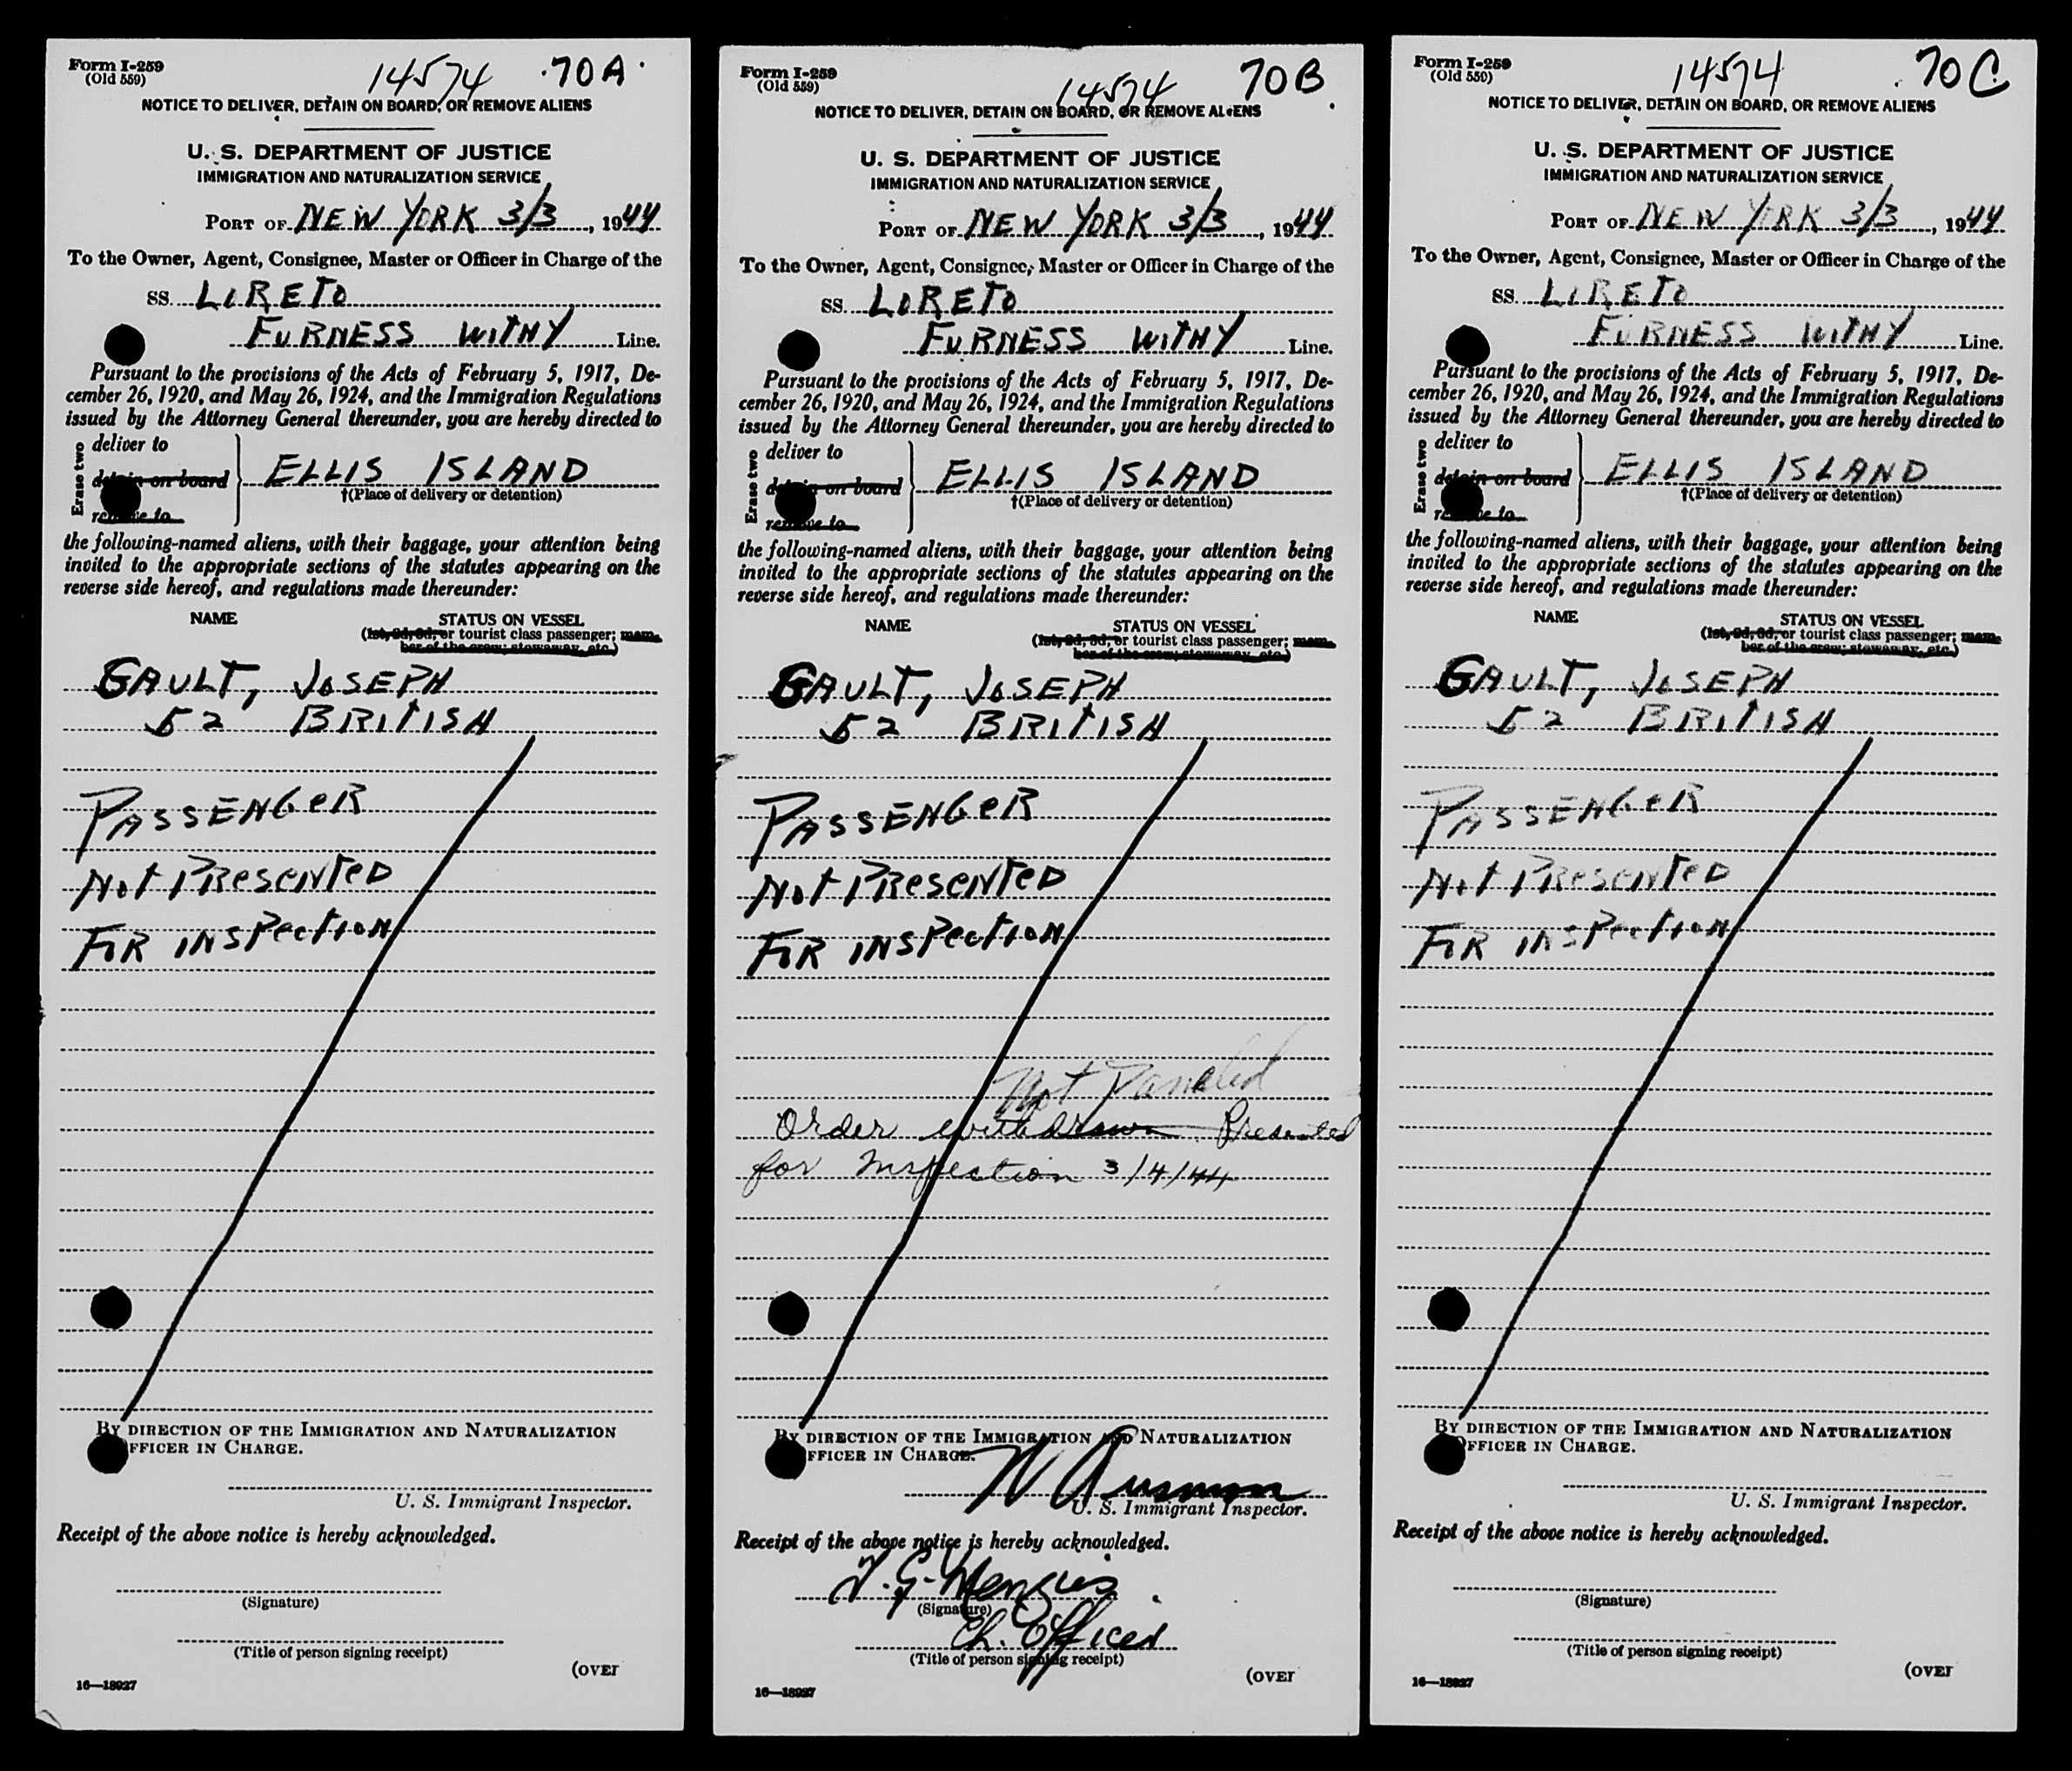 Form I-259
(Old 559)
14574 70A
NOTICE TO DELIVER, DETAIN ON BOARD, OR REMOVE ALIENS
U. S. DEPARTMENT OF JUSTICE
IMMIGRATION AND NATURALIZATION SERVICE
PORT OF NEW YORK 3/3, 1944
To the Owner, Agent, Consignee, Master or Officer in Charge of the
SS. LORETO
FURNESS WITHY Line.
Pursuant to the provisions of the Acts of February 5, 1917, De-
cember 26, 1920, and May 26, 1924, and the Immigration Regulations
issued by the Attorney General thereunder, you are hereby directed to
Erase two
deliver to
detain on board
remove to
ELLIS ISLAND
†(Place of delivery or detention)
the following-named aliens, with their baggage, your attention being
invited to the appropriate sections of the statutes appearing on the
reverse side hereof, and regulations made thereunder:
NAME STATUS ON VESSEL
(1st, 2d, 3d, or tourist class passenger; mem-
ber of the crew; stowaway, etc.)
GAULT, JOSEPH
52 BRITISH
PASSENGER
Not PResenteD
FOR INSPection
BY DIRECTION OF THE IMMIGRATION AND NATURALIZATION
OFFICER IN CHARGE.
U. S. Immigrant Inspector.
Receipt of the above notice is hereby acknowledged.
(Signature)
(Title of person signing receipt)
(OVER
16—18927
Form I-259
(Old 559)
14574 70B
NOTICE TO DELIVER, DETAIN ON BOARD, OR REMOVE ALIENS
U. S. DEPARTMENT OF JUSTICE
IMMIGRATION AND NATURALIZATION SERVICE
PORT OF NEW YORK 3/3, 1944
To the Owner, Agent, Consignee, Master or Officer in Charge of the
SS. LORETO
FURNESS WITHY Line.
Pursuant to the provisions of the Acts of February 5, 1917, De-
cember 26, 1920, and May 26, 1924, and the Immigration Regulations
issued by the Attorney General thereunder, you are hereby directed to
Erase two
deliver to
detain on board
remove to
ELLIS ISLAND
†(Place of delivery or detention)
the following-named aliens, with their baggage, your attention being
invited to the appropriate sections of the statutes appearing on the
reverse side hereof, and regulations made thereunder:
NAME STATUS ON VESSEL
(1st, 2d, 3d, or tourist class passenger; mem-
ber of the crew; stowaway, etc.)
GAULT, JOSEPH
52 BRITISH
PASSENGER
Not PResenteD
FOR INSPection
Not
Order withdrawn. Presented
for Inspection 3/4/44
BY DIRECTION OF THE IMMIGRATION AND NATURALIZATION
OFFICER IN CHARGE.
U. S. Immigrant Inspector.
Receipt of the above notice is hereby acknowledged.
Menzies
(Signature)
Ch. Officer
(Title of person signing receipt)
(OVER
16—18927
Form I-259
(Old 559)
14574 70C
NOTICE TO DELIVER, DETAIN ON BOARD, OR REMOVE ALIENS
U. S. DEPARTMENT OF JUSTICE
IMMIGRATION AND NATURALIZATION SERVICE
PORT OF NEW YORK 3/3, 1944
To the Owner, Agent, Consignee, Master or Officer in Charge of the
SS. LORETO
FURNESS WITHY Line.
Pursuant to the provisions of the Acts of February 5, 1917, De-
cember 26, 1920, and May 26, 1924, and the Immigration Regulations
issued by the Attorney General thereunder, you are hereby directed to
Erase two
deliver to
detain on board
remove to
ELLIS ISLAND
†(Place of delivery or detention)
the following-named aliens, with their baggage, your attention being
invited to the appropriate sections of the statutes appearing on the
reverse side hereof, and regulations made thereunder:
NAME STATUS ON VESSEL
(1st, 2d, 3d, or tourist class passenger; mem-
ber of the crew; stowaway, etc.)
GAULT, JOSEPH
52 BRITISH
PASSENGER
Not PResenteD
FOR INSPection
BY DIRECTION OF THE IMMIGRATION AND NATURALIZATION
OFFICER IN CHARGE.
U. S. Immigrant Inspector.
Receipt of the above notice is hereby acknowledged.
(Signature)
(Title of person signing receipt)
(OVER
16—18927